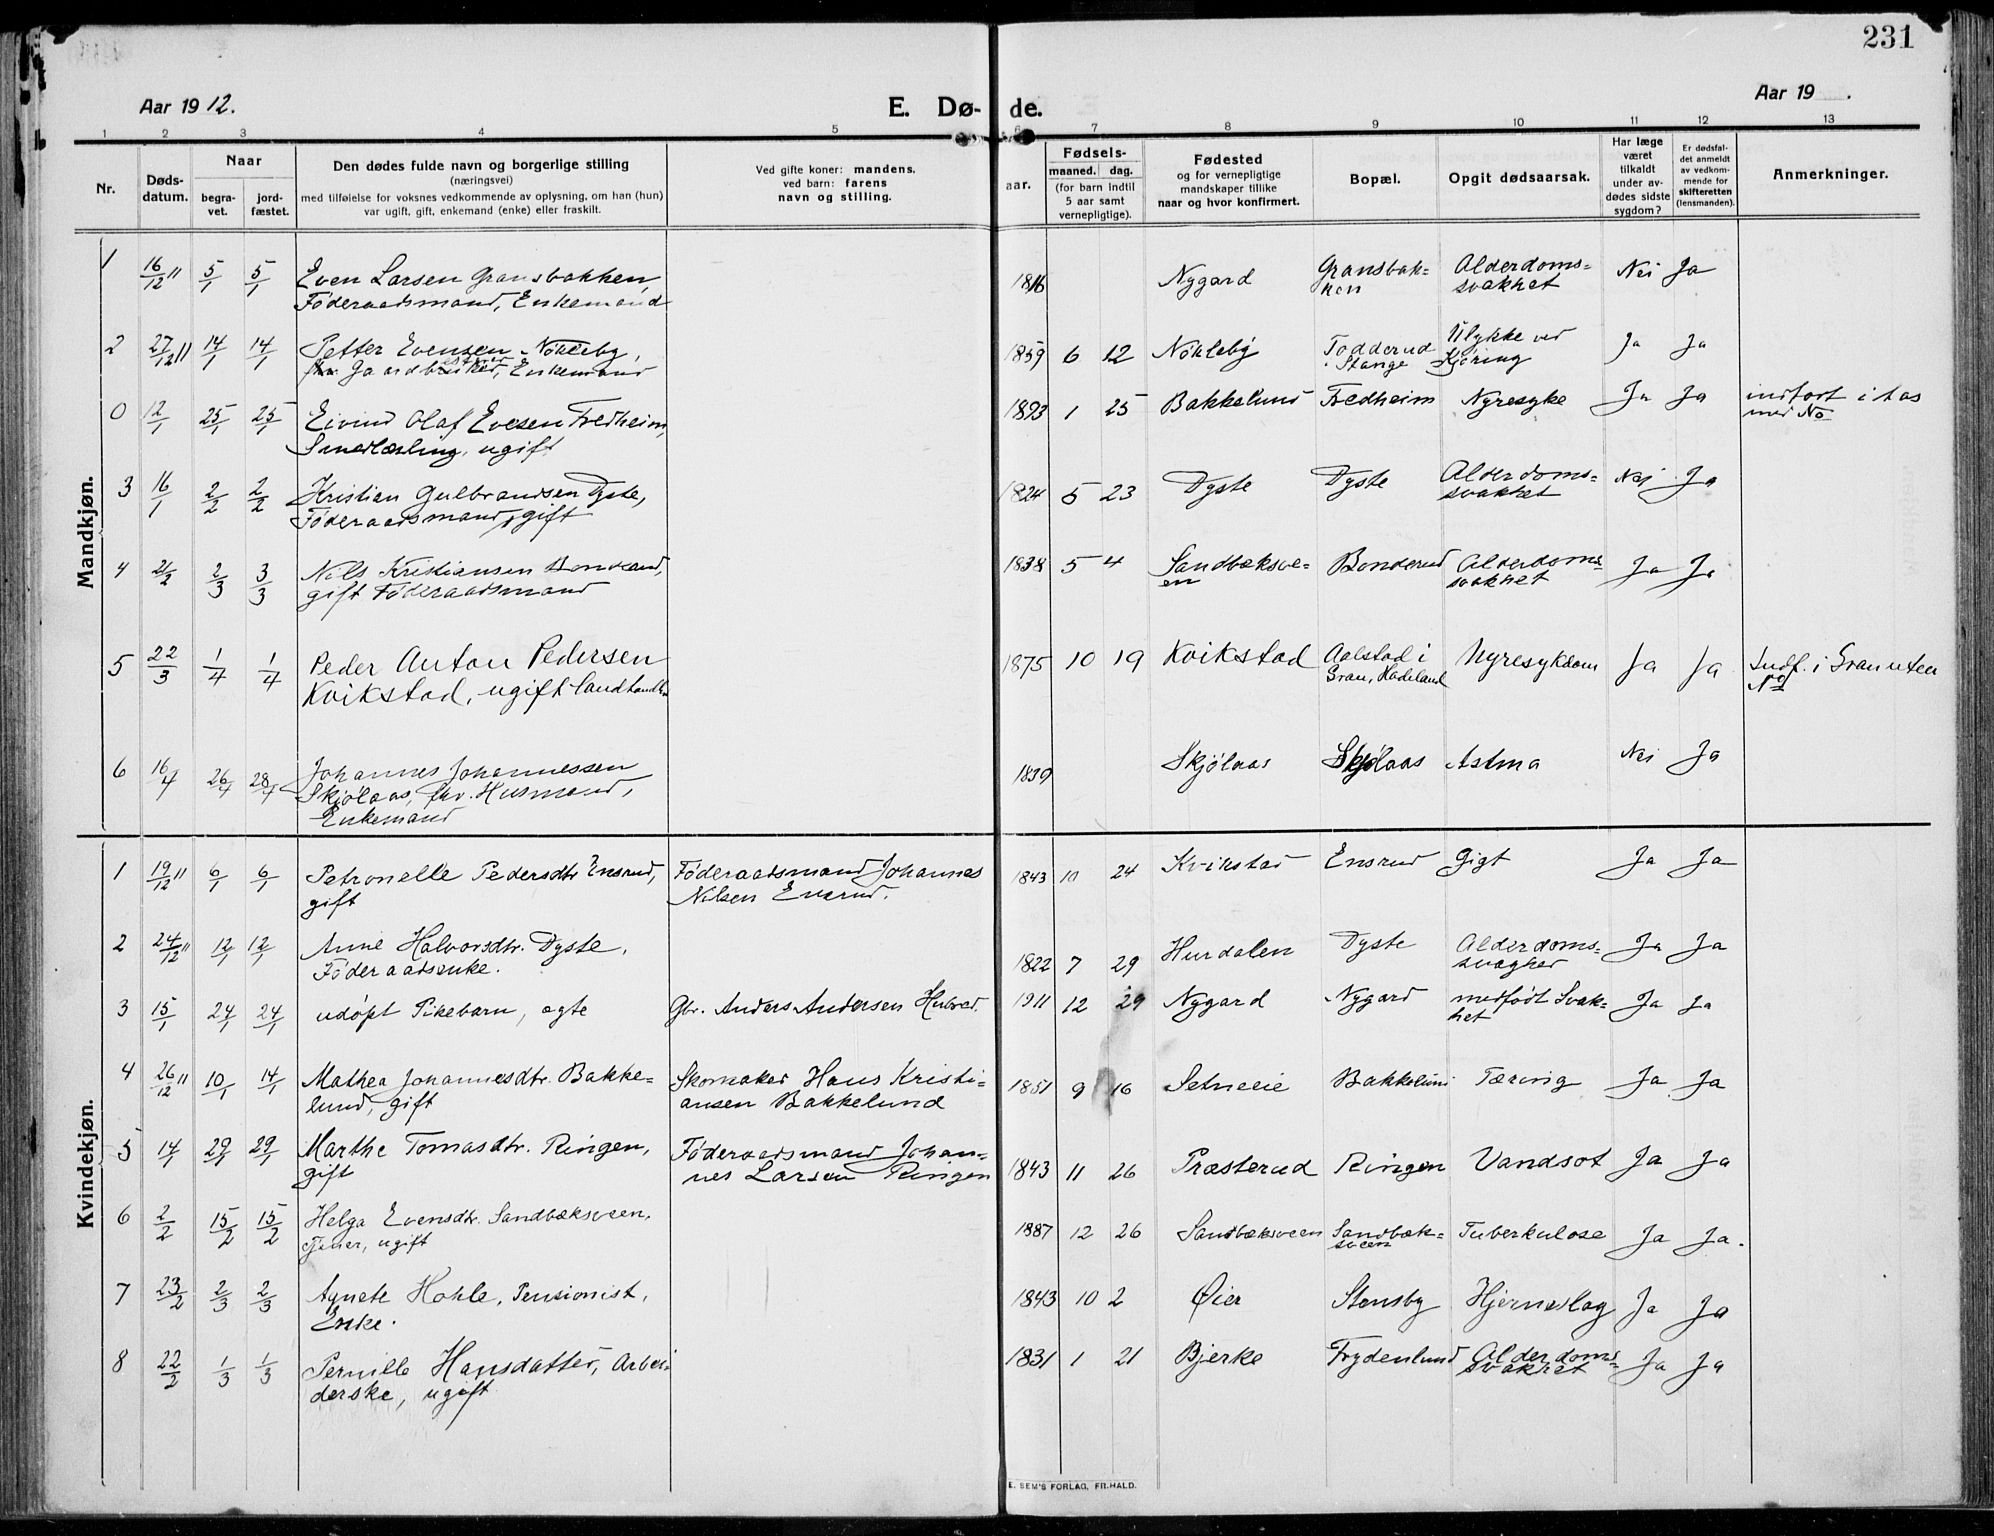 231
Aar 1912.
E. Dø-
de.
Aar 19 .
1 2 3 4 5 6 7 8 9 10 11 12 13
Nr.
Døds-
datum.
Naar
begra-
vet.
jord-
fæstet.
Den dødes fulde navn og borgerlige stilling
(næringsvei)
med tilføielse for voksnes vedkommende av oplysning, om han (hun)
var ugift, gift, enkemand (enke) eller fraskilt.
Ved gifte koner: mandens.
ved barn: farens
navn og stilling.
aar.
Fødsels-
maaned. dag.
(for barn indtil
5 aar samt
vernepligtige).
Fødested
og for vernepligtige
mandskaper tillike
naar og hvor konfirmert.
Bopæl.
Opgit dødsaarsak.
Har læge
været
tilkaldt
under av-
dødes sidste
sygdom?
Er dødsfal-
det anmeldt
av vedkom-
mende for
skifteretten
(lensmanden).
Anmerkninger.
Mandkjøn.
1 16/12 11 5/1 5/1 Even Larsen Gransbakken, 1816 Nygard Gransbak= Alderdoms= Nei Ja
Føderaadsmand, Enkemand ken svakhet
2 27/12 11 14/1 14/1 Petter Evensen Nøkleby, 1859 6 12 Nøkleby Todderud Ulykke ved Ja Ja
Gaardbruker, Enkemand Stange Kjøring
0 12/1 25/1 25/1 Eivind Olaf Evesen Fredheim, 1893 1 25 Bakkelund Fredheim Nyresyke Ja Ja indført i
Smedlærling, ugift med No
3 16/1 2/2 2/2 Kristian Gulbrandsen Dyste, 1824 5 23 Dyste Dyste Alderdoms= Nei Ja
Føderaadsmand, gift svakhet
4 2/2 2/3 3/3 Nils Kristiansen Bonderud, 1838 5 4 Sandbæksve= Bonderud Alderdoms= Ja Ja
gift Føderaadsmand en svakhet
5 22/3 1/4 1/4 Peder Anton Pedersen 1875 10 19 Kvikstad Aalstad i Nyresykdom Ja Ja Indf. i Gran uten
Kvikstad, ugift landhandler Gran, Hadeland No
6 16/4 26/4 28/4 Johannes Johannessen 1839 Skjølaas Skjølaas Astma Nei Ja
Skjølaas, fhv. Husmand,
Enkemand
Kvindekjøn.
1 19/12 11 6/1 6/1 Petronelle Pedersdtr Ensrud, Føderaadsmand Johannes 1843 10 24 Kvikstad Ensrud Gigt Ja Ja
gift Nilsen Ensrud.
2 24/12 11 12/1 12/1 Anne Halvorsdtr. Dyste, 1822 7 29 Hurdalen Dyste Alderdoms= Ja Ja
Føderaadsenke. svaghed
3 15/1 24/1 24/1 udøpt Pikebarn, egte Gbr. Anders Andersen Hulved. 1911 12 29 Nygard Nygard medfødt Svak= Ja Ja
het
4 26/12 11 10/1 14/1 Mathea Johannesdtr. Bakke= Skomaker Hans Kristi= 1851 9 16 Setneeie Bakkelund Tæring Ja Ja
lund, gift ansen Bakkelund
5 14/1 29/1 29/1 Marthe Tomasdtr. Ringen, Føderaadsmand Johan= 1843 11 26 Præsterud Ringen Vandsot Ja Ja
gift nes Larsen Ringen
6 2/2 15/2 15/2 Helga Evensdtr. Sandbæksveen, 1887 12 26 Sandbæksveen Sandbæk= Tuberkulose Ja Ja.
Tjener, ugift sveen
7 23/2 2/3 2/3 Agnete Hohle, Pensionist, 1843 10 2 Øier Stensby Hjerneslag Ja Ja
Enke.
8 22/2 1/3 1/3 Pernille Hansdatter, Arbei= 1831 1 21 Bjerke Frydenlund Alderdoms= Ja Ja
derske, ugift svakhet
E. SEM'S FORLAG, FR.HALD.